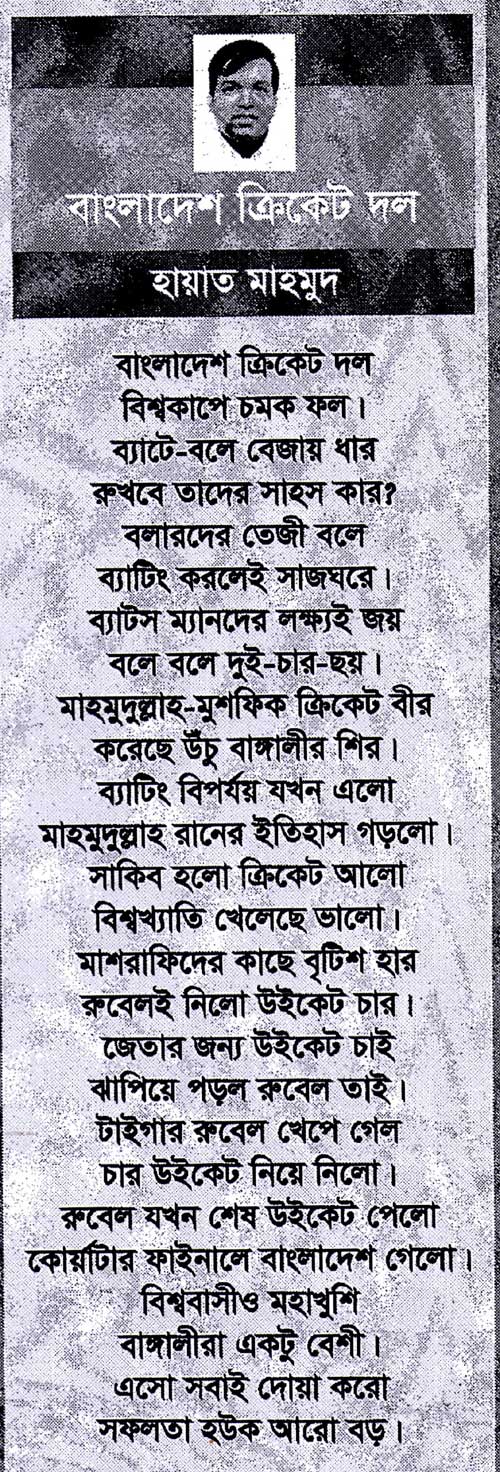 বাংলাদেশ ক্রিকেট দল
হায়াত মাহমুদ
বাংলাদেশ ক্রিকেট দল
বিশ্বকাপে চমক ফল।
ব্যাটে-বলে বেজায় ধার
রুখবে তাদের সাহস কার?
বলারদের তেজী বলে
ব্যাটিং করলেই সাজঘরে।
ব্যাটস ম্যানদের লক্ষ্যই জয়
বলে বলে দুই-চার-ছয়।
মাহমুদুল্লাহ-মুশফিক ক্রিকেট বীর
করেছে উঁচু বাঙ্গালীর শির।
ব্যাটিং বিপর্যয় যখন এলো
মাহমুদুল্লাহ রানের ইতিহাস গড়লো।
সাকিব হলো ক্রিকেট আলো
বিশ্বখ্যাতি খেলেছে ভালো।
মাশরাফিদের কাছে বৃটিশ হার
রুবেলই নিলো উইকেট চার।
জেতার জন্য উইকেট চাই
ঝাপিয়ে পড়ল রুবেল তাই।
টাইগার রুবেল খেপে গেল
চার উইকেট নিয়ে নিলো।
রুবেল যখন শেষ উইকেট পেলো
কোর্য়াটার ফাইনালে বাংলাদেশ গেলো।
বিশ্ববাসীও মহাখুশি
বাঙ্গালীরা একটু বেশী।
এসো সবাই দোয়া করো
সফলতা হউক আরো বড়।